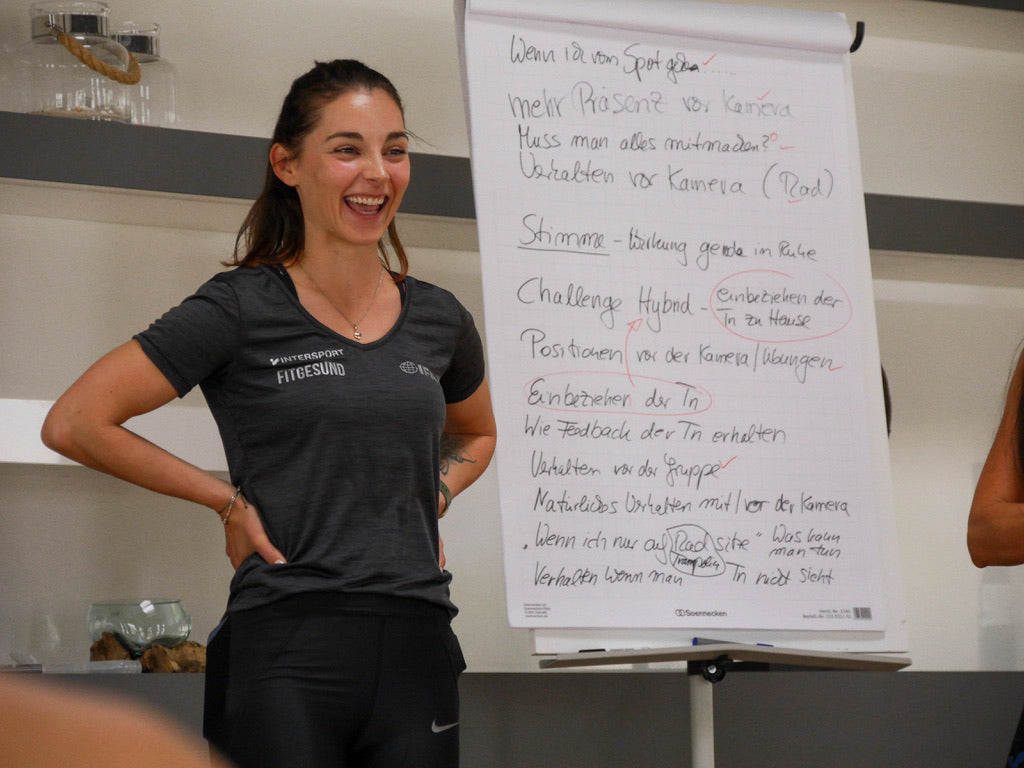 Wenn ich vom Spot gehe.....
mehr Präsenz vor Kamera
Muss man alles mitmachen?
Verhalten vor Kamera (Rad)
Stimme - Wirkung gerade in Ruhe
Challenge Hybrid - einbeziehen der
Tn zu Hause
Positionen vor der Kamera/Übungen
Einbeziehen der Tn
Wie Feedback der Tn erhalten
Verhalten vor der Gruppe
Natürliches Verhalten mit/vor der Kamera
"Wenn ich nur auf Rad sitze" Was kann
Trampolin man tun
Verhalten wenn man Tn nicht sieht
Soennecken
INTERSPORT
FITGESUND